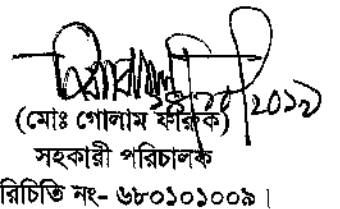 ২০১৯
(মোঃ গোলাম ফারুক)
সহকারী পরিচালক
রিচিতি নং- ৬৮০১০১০০৯।